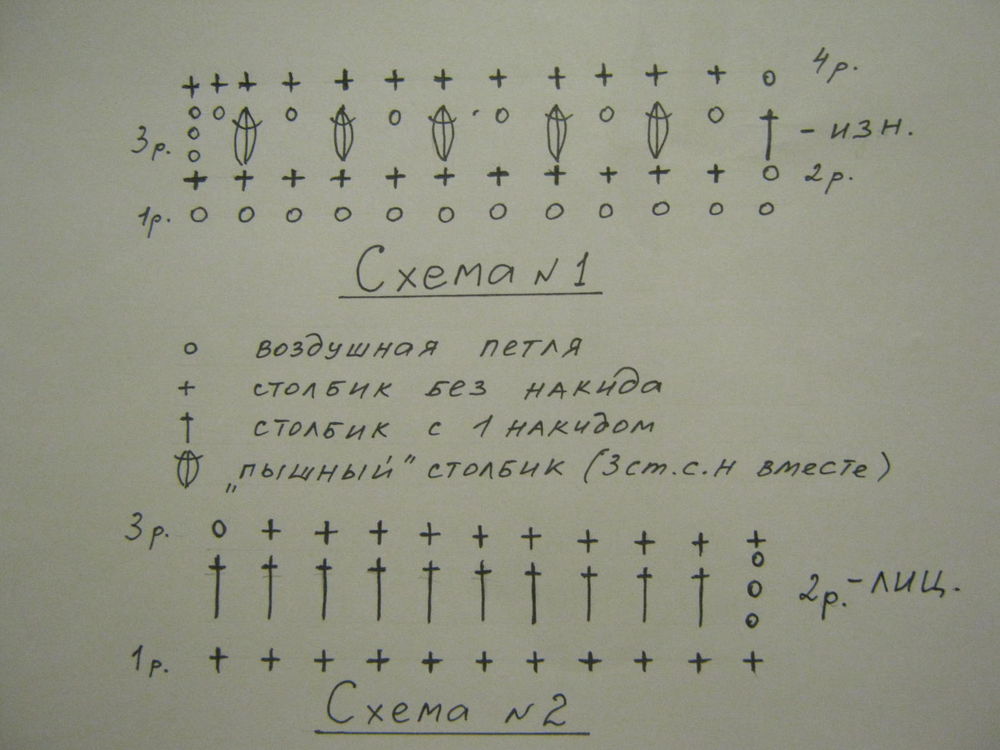 4р.
3р. - изн.
2р.
1р.
Схема N1
воздушная петля
столбик без накида
столбик с 1 накидом
„пышный" столбик (3ст.с.н вместе)
3р.
2р.-лиц.
1р.
Схема N2